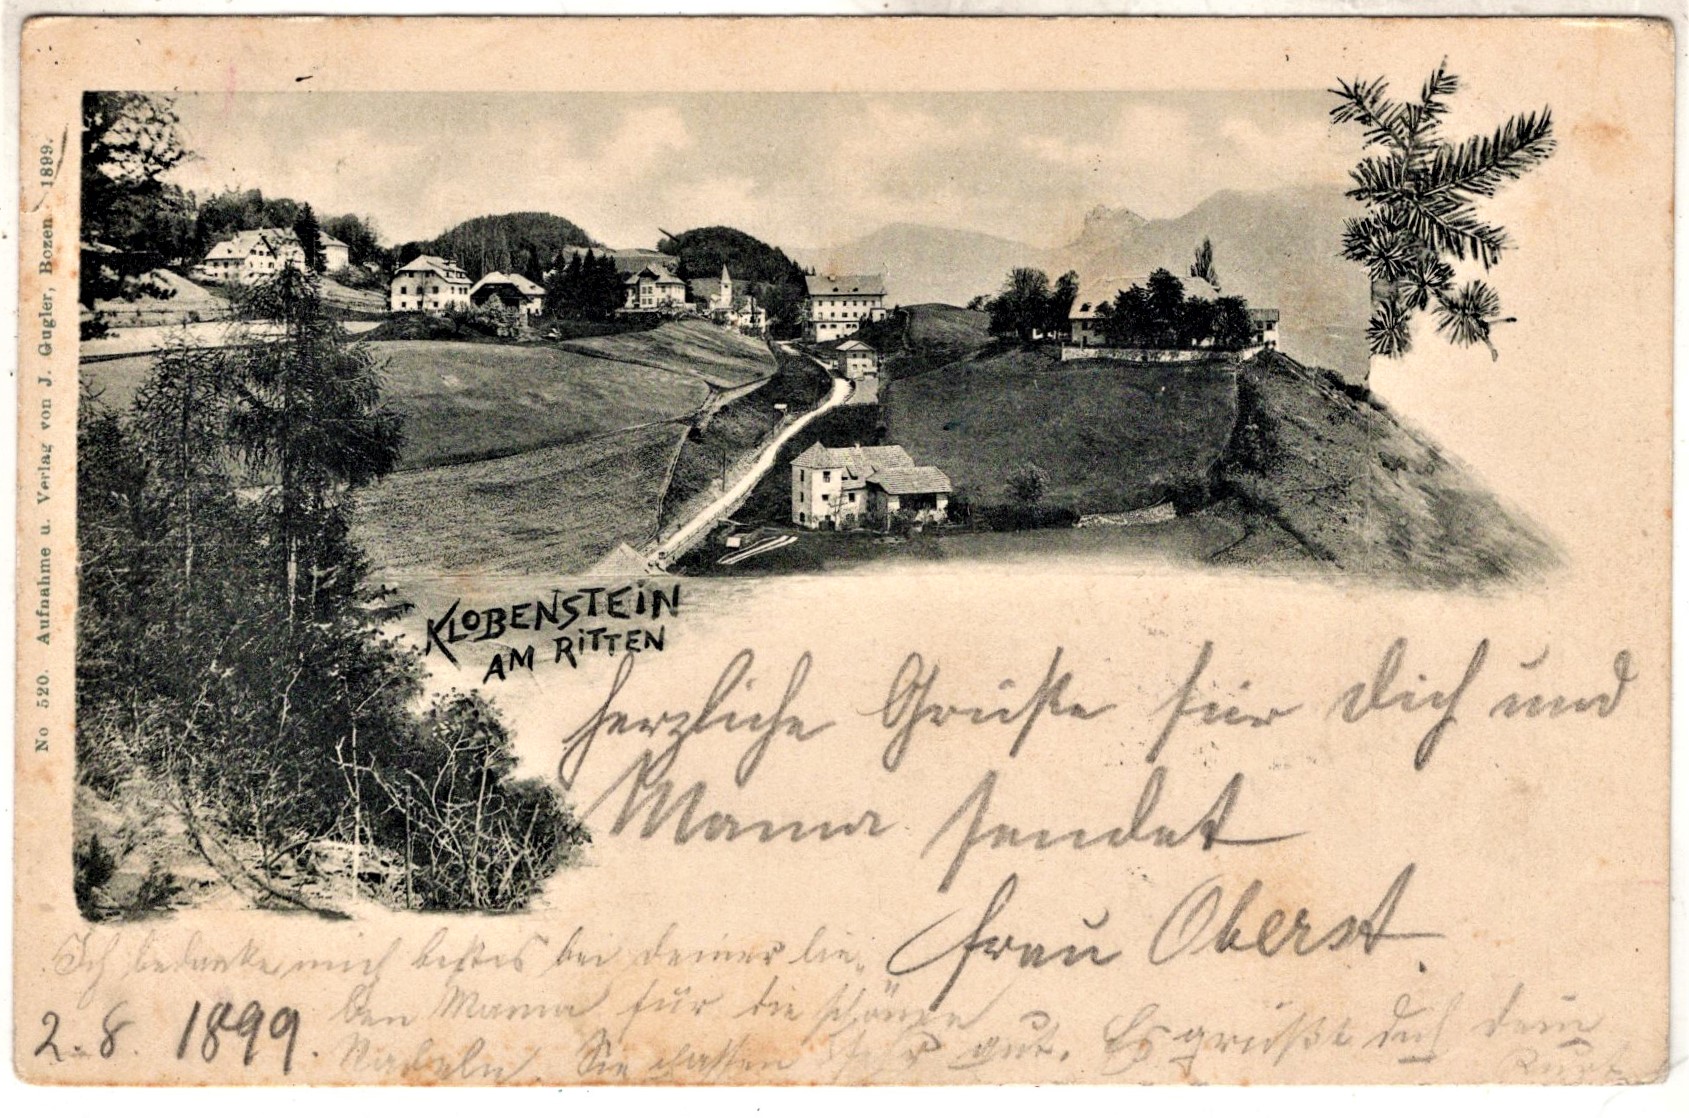 No 520. Aufnahme u. Verlag von J. Gugler, Bozen 1899.
KLOBENSTEIN
AM RITTEN
herzliche Grüße für Dich und
Mama sendet
Frau Oberst.
Ich bedanke mich bestes bei deiner lie-
ben Mama für die schönen
Nadeln. Sie passen sehr gut. Es grüßt dich dein
Kurt
2. 8. 1899.